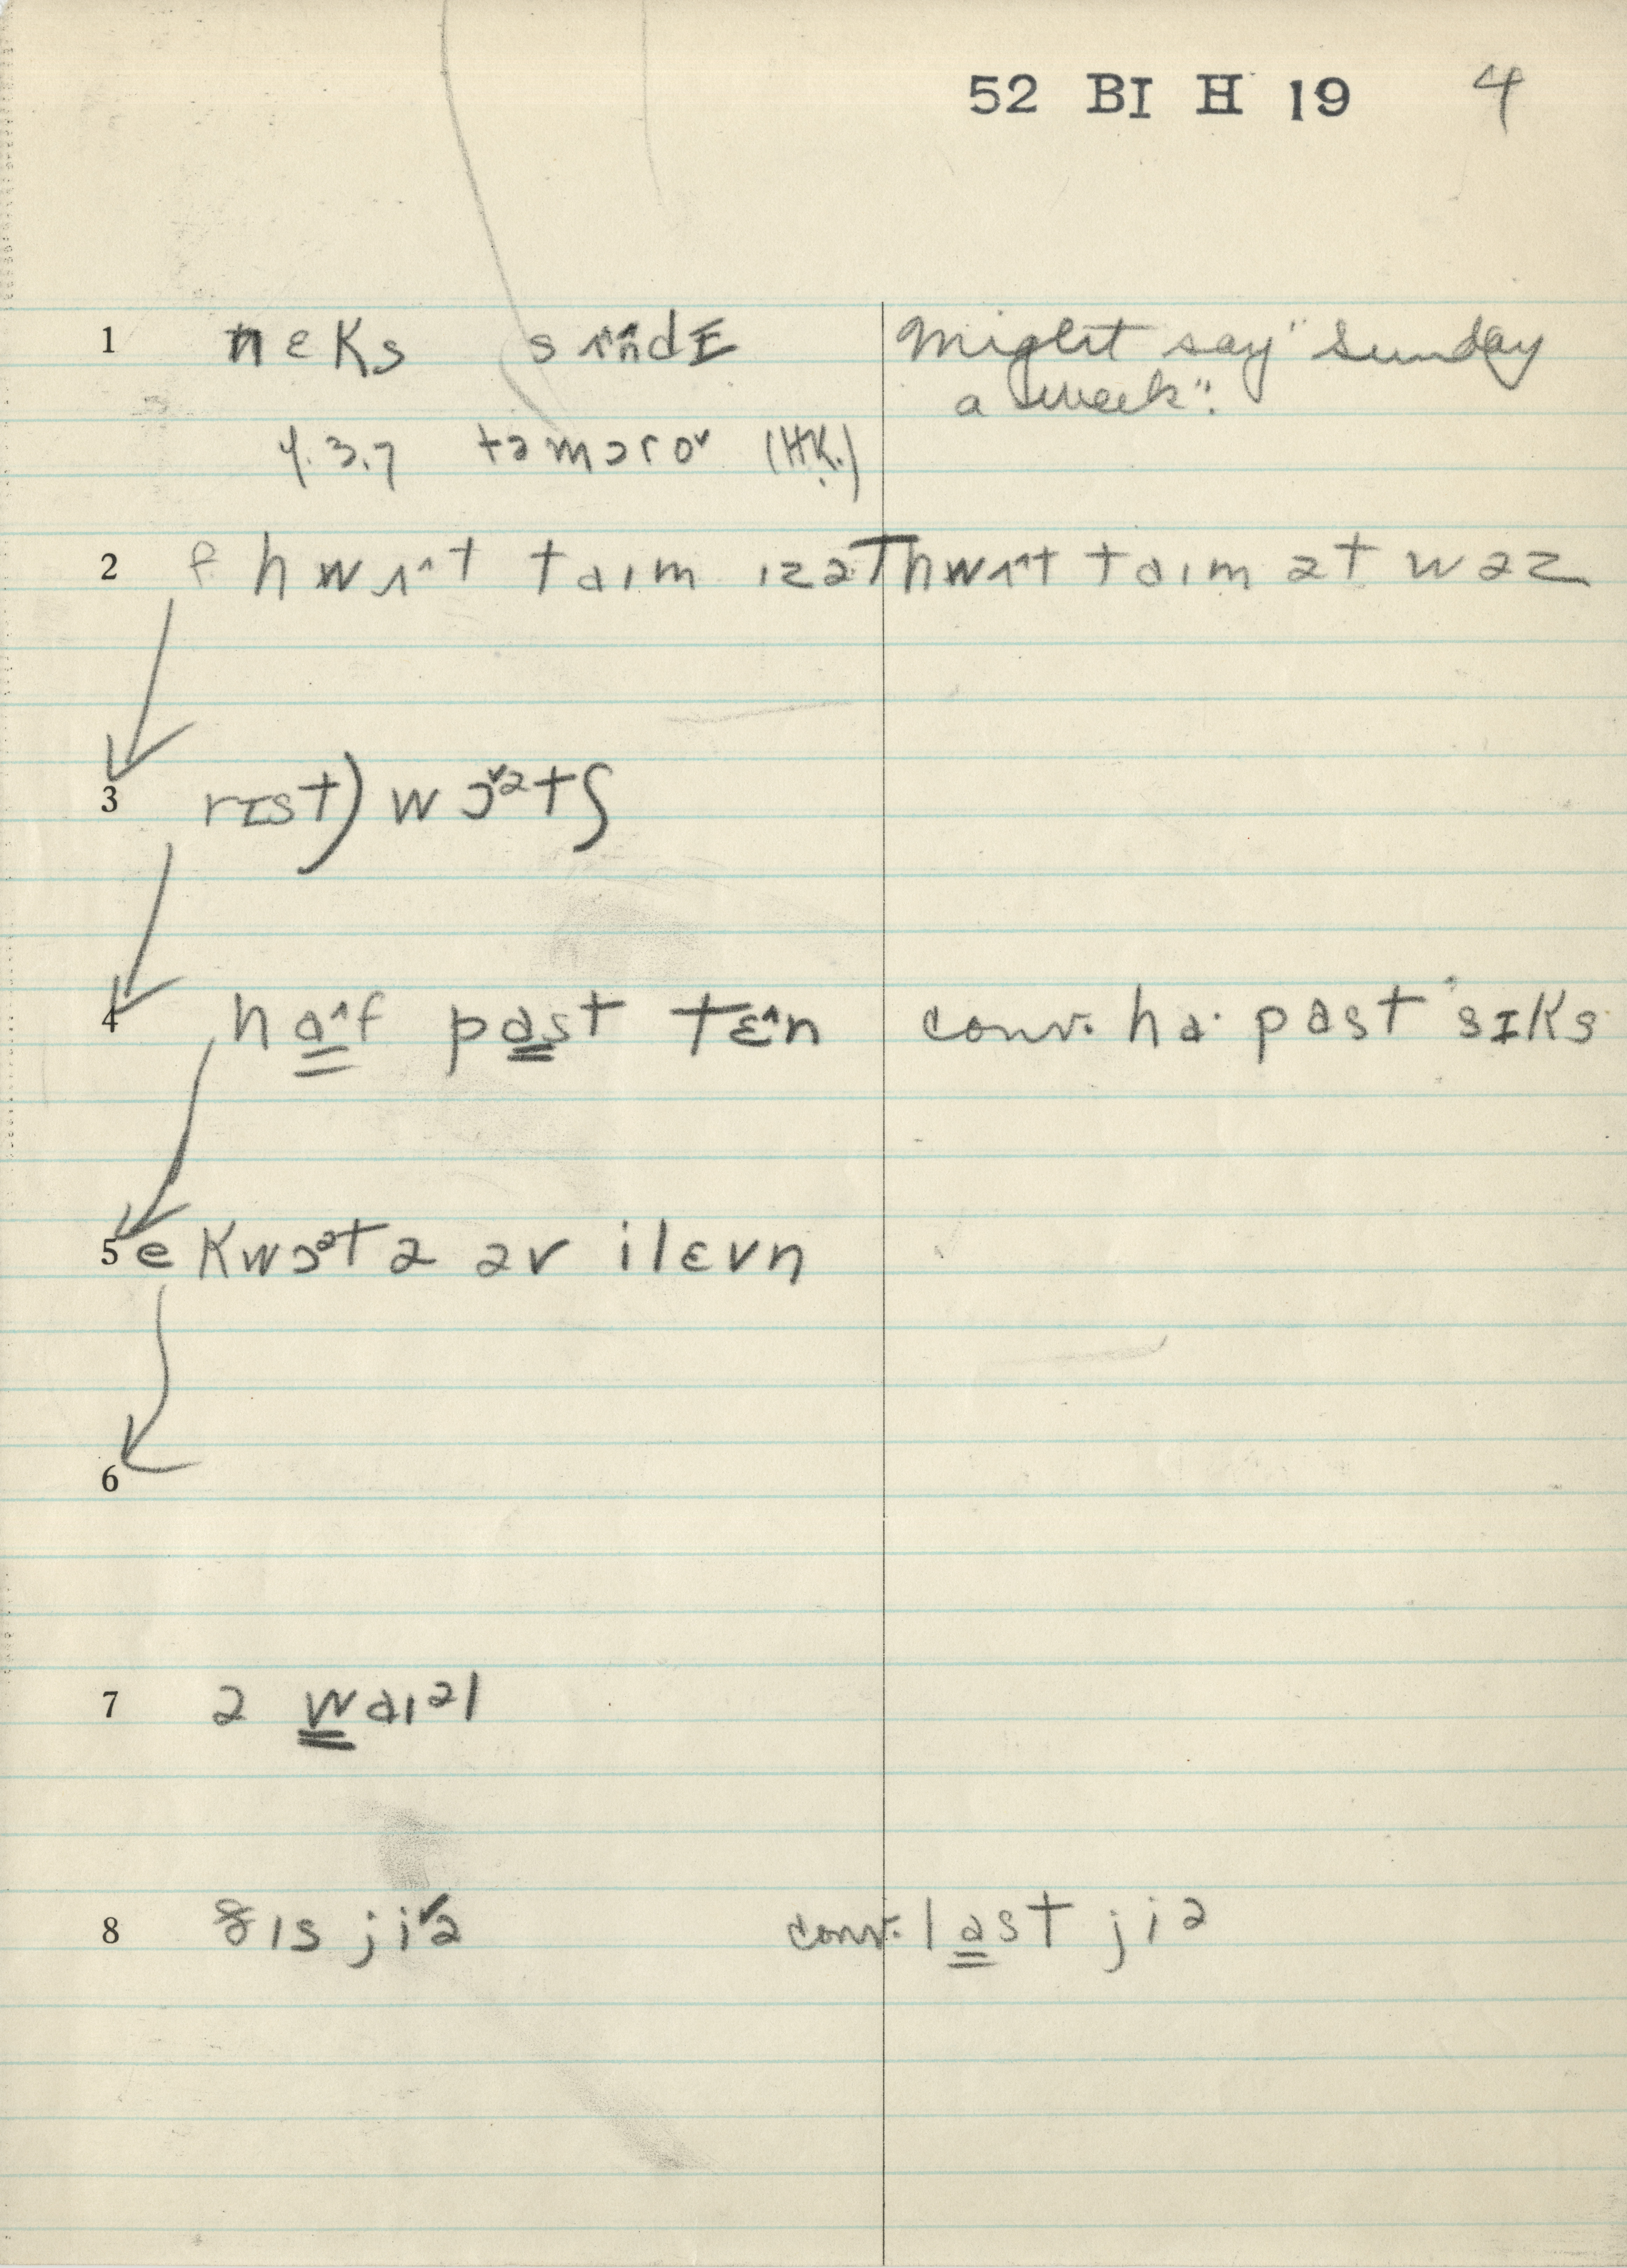 52 BI H 19 4
1 neks sʌ˄ndɪ Might say "Sunday
a week".
4.3.7 təmɔroˇ (HK.)
2 f hwʌ˄t taɪm ɪzəT hwʌ˄t taɪm ət wəz
3 rɪst) wɔˇᵊtʃ
4 ha˄f past tɛ˄n conv. ha· past sɪks
5 e kwɔᵊtə əv ilɛvn
6
7 ə waɪᵊl
8 ðɪs jiˇə conv. last jiᵊ